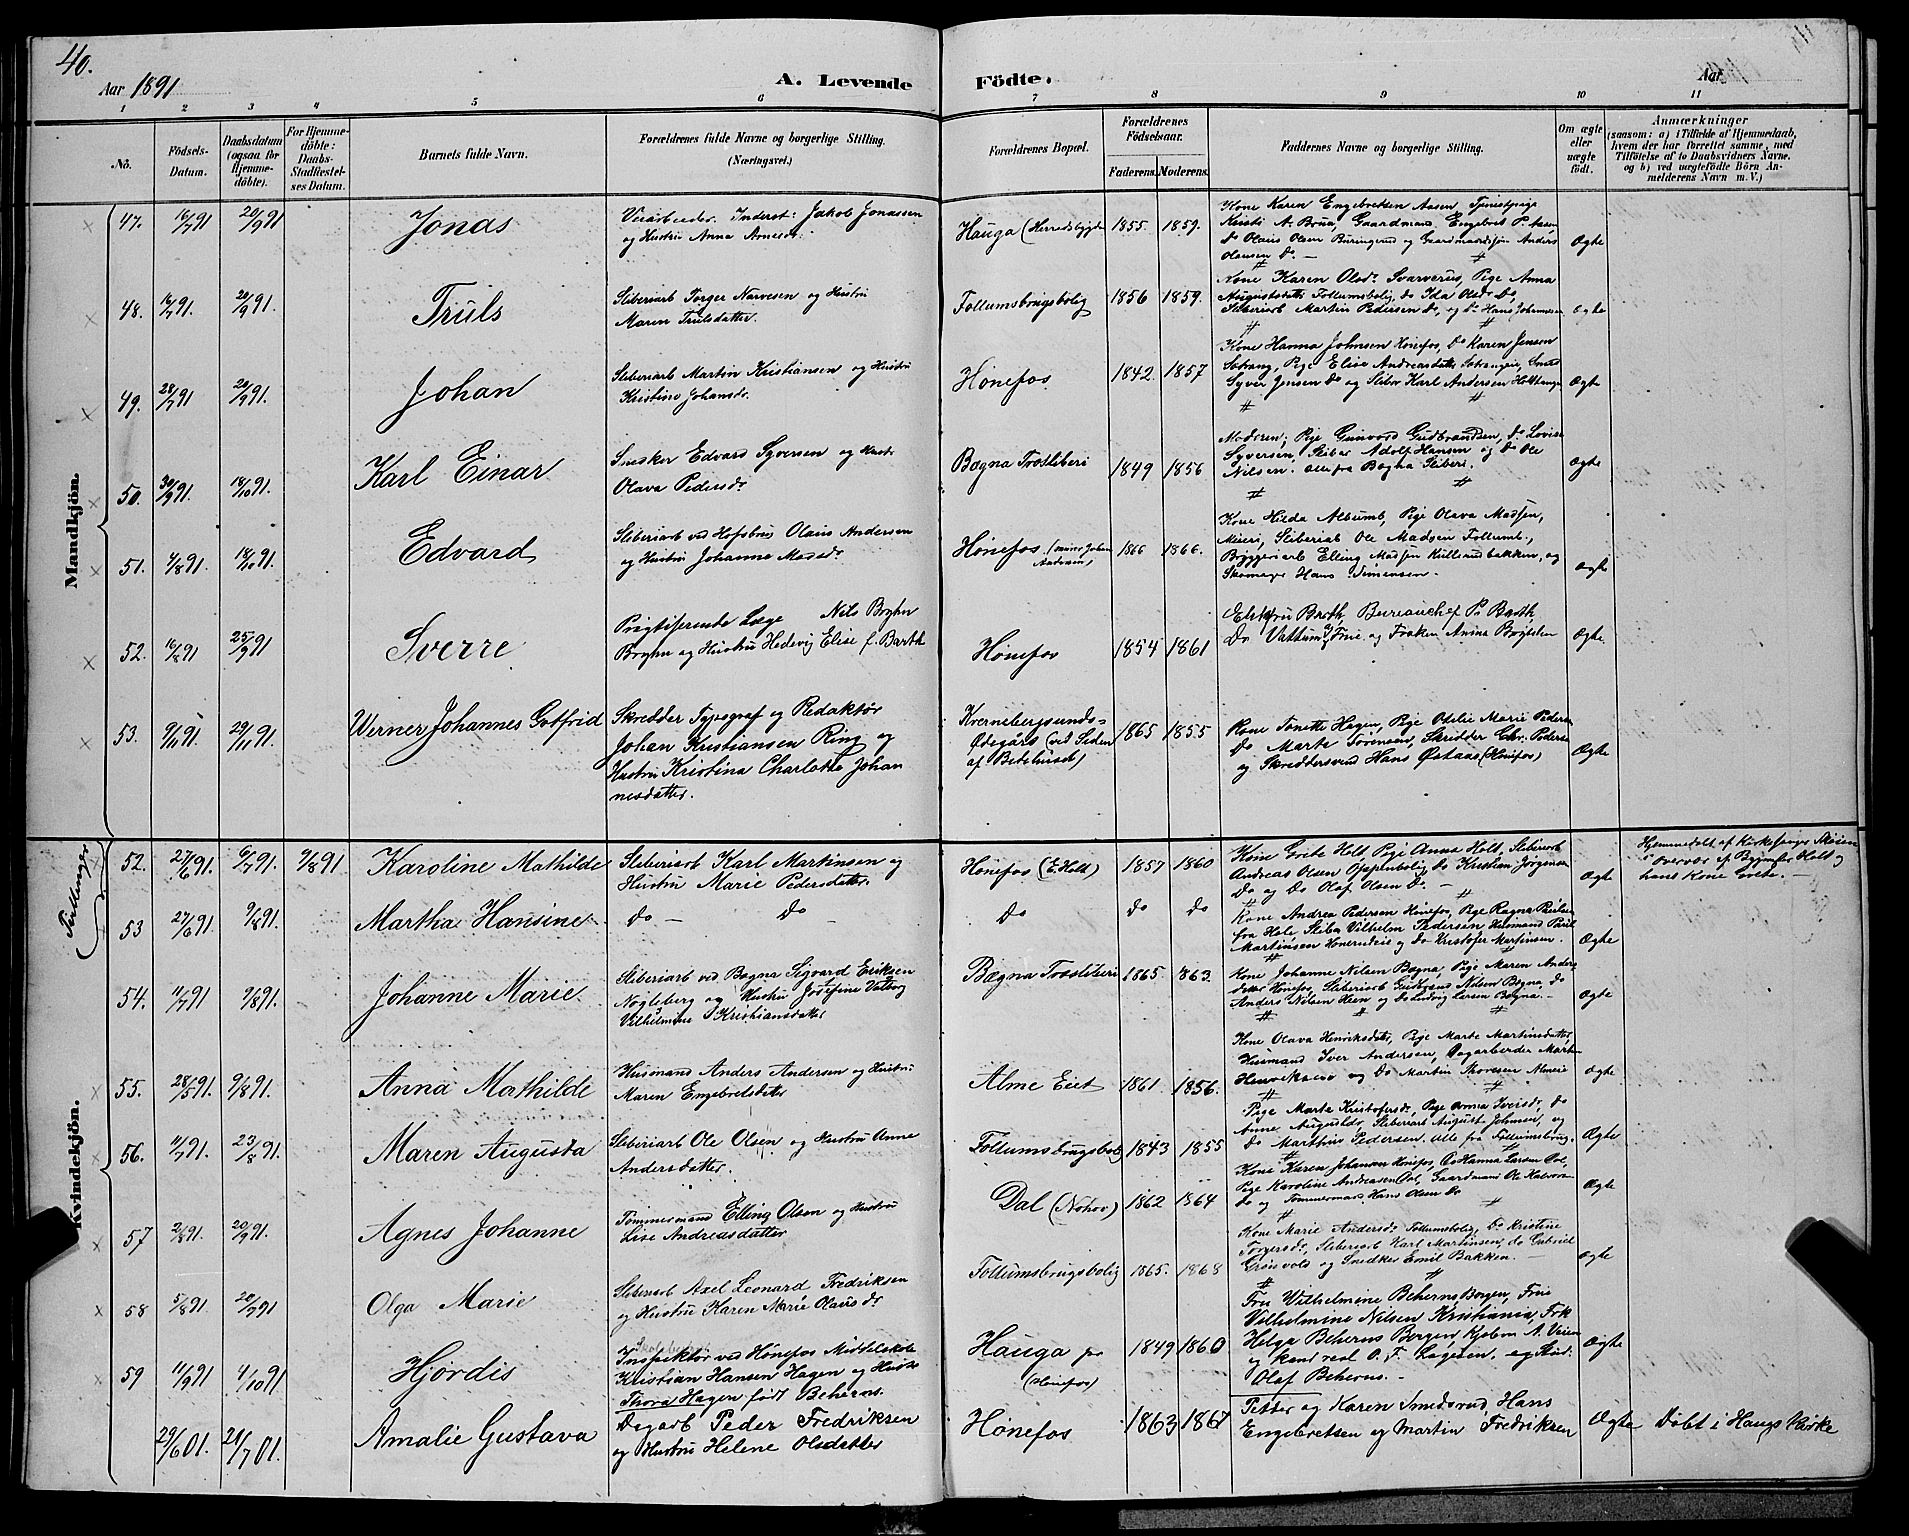 40.
Aar 1891
A. Levende Födte.
Aar
1 2 3 4 5 6 7 8 9 10 11
No.
Födsels-Datum.
Daabsdatum (ogsaa for Hjemme-döbte).
For Hjemme-döbte: Daabs-Stadfæstel-ses Datum.
Barnets fulde Navn.
Forældrenes fulde Navne og borgerlige Stilling. (Næringsvei.)
Forældrenes Bopæl.
Forældrenes Födselsaar.
Faderens. Moderens.
Faddernes Navne og borgerlige Stilling.
Om ægte eller uægte födt.
Anmærkninger
(saasom: a) i Tilfælde af Hjemmedaab,
hvem der har forrettet samme, med
Tilföielse af to Daabsvidners Navne.
og b) ved uægtefödte Börn An-
melderens Navn m. V.)
Mandkjön.
47. 16/7 91 20/9 91 Jonas
Inderst: Jakob Jonassen
og Hustru Anna Arnesdr.
Hauga (Herredsbygde) 1855. 1859.
Kone Karen Engebretsen Aasen, Tjenestpige
Kristi A. Broua, Gaardmand Engebret P. Aasen,
Do Olaus Olsen Buringerud og Gaardmandssøn Anders
Olausen Do. Ægte
48. 16/7 91. 20/9 91. Truls
Sliberiarb Torger Narvesen og Hustru
Maren Trulsdatter.
Follumsbrugsbolig 1856 1859.
Kone Karen Olsdr. Svarverus, Pige Anna
Augustdatter Follumsbolig, do Ida Olsdr Do,
Sliberiarb Martin Pedersen do, og do Hans Johannesen Ægte
49. 28/7 91 20/9 91. Johan
Sliberiarb Martin Kristiansen og Hustru
Kristine Johansdr.
Hönefos 1842. 1857
Kone Hanna Johnsen Hönefos, Do Karen Jensen
Sotrang, Pige Elise Andreasdatter Sotrangeie, Smed
Syver Jensen do og Slibar Karl Andersen Ægte
50. 30/9 91. 18/10 91. Karl Einar
Snedker Edvard Syversen og Hust.
Olava Pedersdr
Bægna Træsliberi 1849 1856
Moderen; Pige Gunvord Gudbrandsen, Do Lovise
Syversen, Slibar Adolf Hansen og Do Ole
Nilsen. Alle fra Bægna Sliberi. Ægte
51. 4/8 91. 18/10 91. Edvard
Sliberiarb ved Hofsbrus Olaus Andersen
og Hustru Johanne Madsdr
Hönefos 1866 1866.
Kone Hilda Albumb, Pige Olava Madsen,
Meieri, Sliberiab Ole Madsen Follumb,
Bryggeriarb Elling Madsen Kullerudbakken, og
Skomager Hans Simensen. Ægte
52. 16/8 91 25/9 91 Sverre
Praktiserende Læge Nils Bryhn
Bryhn og Hustru Hedevig Elise f. Barth
Hönefos 1854 1861
Barth, Bureauchef P. Barth,
Do Vattum, Frue og Frøken Anina Ægte
53. 9/11 91. 29/11 91. Werner Johannes Gotfrid
Skrædder Typograf og Redaktør
Johan Kristiansen Ring og
Hustru Kristina Charlotte Johan
nesdatter.
Kvernebergsunds-
Ødegård (ved Siden
af Bedehuset) 1865 1855
Kone Tonette Hagen, Pige Otilie Marie Pedersen
Do Marte Sørensen, Skrædder Chr. Pedersen
og Skræddersvend Hans Østaas (Hönefos) Ægte
Kvindekjön.
Tvillinger
52. 27/6 91. 6/7 91. 9/8 91 Karoline Mathilde
Sliberiarb Karl Martinsen og
Hustru Marie Pedersdatter.
Hönefos (E. Holt) 1857 1860
Kone Grete Holt, Pige Anna Holt, Sliberiarb
Andreas Olsen Oppenbolig, do Kristian Jörgensen
Do og Do Olaf Olsen Do. Ægte
Hjemmedøbt af Kirkesanger Skøien
i overvær af Holt og
hans Kone Grete.
53 27/6 91. 9/8 91. Martha Hansine
do do
Do do do
Kone Andrea Pedersen Hönefos, Pige Ragna Paulsen
fra Hole, Sliba Vilhelm Pedersen, Husmand Paul
Martinsen Honerudeie og Do Kristofer Martinsen. Ægte
54. 11/7 91 9/8 91. Johanne Marie
Sliberiarb ved Bægna Sigvard Eriksen
Nøgleberg og Hustru Josefine Valborg
Vilhelmine Kristiansdatter
Bægna Træsliberi 1865. 863.
Kone Johanne Nilsen Bægna, Pige Maren Anders
datter Hönefos, Sliberiarb Nilsen Bægna, Do
Anders Nilsen Heen og Do Ludvig Larsen Bægna. Ægte
55. 28/5 91. 9/8 91. Anna Mathilde
Husmand Anders Andersen og Hustru
Maren Engebretsdatter
Alme Eiet 1861. 1856.
Kone Olava Henriksdatter, Pige Marte Martinsdatter,
Husmand Iver Andersen, Dagarbeider Martin
Henriksen og Do Martin Thoresen Almeie Ægte
56. 11/7 91. 23/8 91. Maren Augusta
Sliberiarb Ole Olsen og Hustru Anne
Andersdatter.
Follumsbrugsbolig 1843 1855
Pige Marta Kristofersdr, Pige Anna Iversdr, Do
Anne Augustdr, Sliberiarb August Johnsen, og
Do Marthin Pedersen. Alle fra Follumsbrug. Ægte
57 2/8 91. 20/9 91. Agnes Johanne
Tømmermand Elling Olsen og Hustru
Lise Andreasdatter
Dal (Nohov) 1862 1864
Kone Karen Johansen Hönefos, Do Hanna Larsen Dal,
Pige Karoline Andreasen Dal, Gaardmand Ole Halvorsen
Do og Tømmermand Hans Olsen Do Ægte
58 5/8 91. 20/9 91 Olga Marie
Sliberiarb Axel Leonard Fredriksen
og Hustru Karen Marie Olausdr
Follumsbrugsbolig 1865. 1868
Kone Marie Andersdr Follumsbolig, Do Kristine
Torgersdr, Sliberiarb Karl Martinsen, do Gabriel
Grönvold og Snedker Emil Bakken. Ægte
59 11/9 91 4/10 91 Hjördis
Inspektör ved Hönefos Middelskole
Kristian Hansen Hagen og Hustru
Thora Hagen født Beherns.
Hauga
(Hönefos) 1849 1860
Fru Wilhelmine Beherns Bergen, Frue
Vilhelmine Nilsen Kristiania, Frk
Helga Beherns Bergen, Kjøbm. A. Veien
og kand real O. F. Lagesen, og Stud.
Olaf Beherns. Ægte
29/6 01. 21/7 01. Amalie Gustava
Dagarb Peder Fredriksen
og Hustru Helene Olsdatter
Hönefos 1863 1867
Petter og Karen Smedsrud Hans
Engebretsen og Martin Fredriksen Ægte Döbt i Haugs Kirke